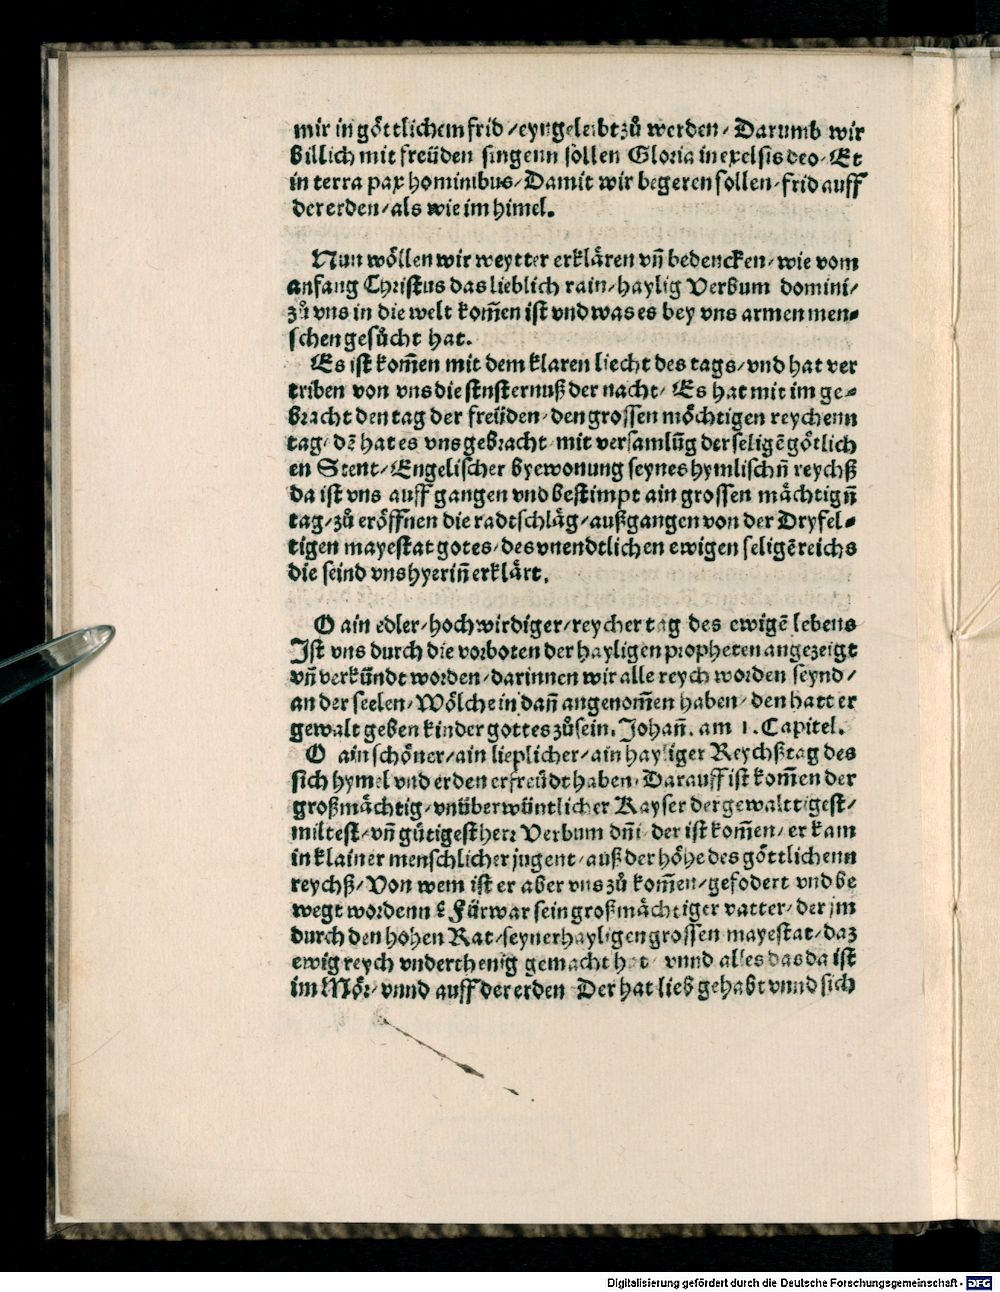 mir in göttlichem frid / eyngeleibt zů werden / Darumb wir
billich mit freüden singenn söllen Gloria in exelsis deo / Et
in terra pax hominibus / Damit wir begeren sollen / frid auff
der erden / als wie im himel.
Nun wöllen wir weytter erklären vñ bedencken / wie vom
anfang Christus das lieblich rain / haylig Verbum domini /
zů vns in die welt kom̄en ist vnd was es bey vns armen men⸗
schen gesůcht hat.
Es ist kom̄en mit dem klaren liecht des tags / vnd hat ver
triben von vns die finsternuß der nacht / Es hat mit im ge⸗
bracht den tag der freüden / den grossen möchtigen reychenn
tag / dē hat es vns gebracht mit versamlūg der seligē götlich
en Stent / Engelischer byewonung seynes hymlischñ reychß
da ist vns auff gangen vnd bestimpt ain grossen mächtigñ
tag / zů eröffnen die radtschläg / außgangen von der Dryfel⸗
tigen mayestat gotes / des vnendtlichen ewigen seligē reichs
die seind vns hyeriñ erklärt.
O ain edler / hochwirdiger / reycher tag des ewigē lebens
Ist vns durch die vorboten der hayligen propheten angezeigt
vñ verkündt worden / darinnen wir alle reych worden seynd /
an der seelen / Wölche in dañ angenom̄en haben / den hatt er
gewalt geben kinder gottes zů sein. Johañ. am 1. Capitel.
O ain schöner / ain lieplicher / ain hayliger Reychßtag des
sich hymel vnd erden erfreüdt haben / Darauff ist kom̄en der
großmächtig / vnüberwüntlicher Kayser der gewalttigest /
miltest / vñ gütigest herr Verbum dñi / der ist kom̄en / er kam
in klainer menschlicher jugent / auß der höhe des göttlichenn
reychß / Von wem ist er aber vns zů kom̄en / gefodert vnd be
wegt wordenn ? Fürwar sein großmächtiger vatter / der jm
durch den hohen Rat / seyner hayligen grossen mayestat / daz
ewig reych vnderthenig gemacht hat / vnnd alles das da ist
im Mör / vnnd auff der erden Der hat lieb gehabt vnnd sich
Digitalisierung gefördert durch die Deutsche Forschungsgemeinschaft - DFG